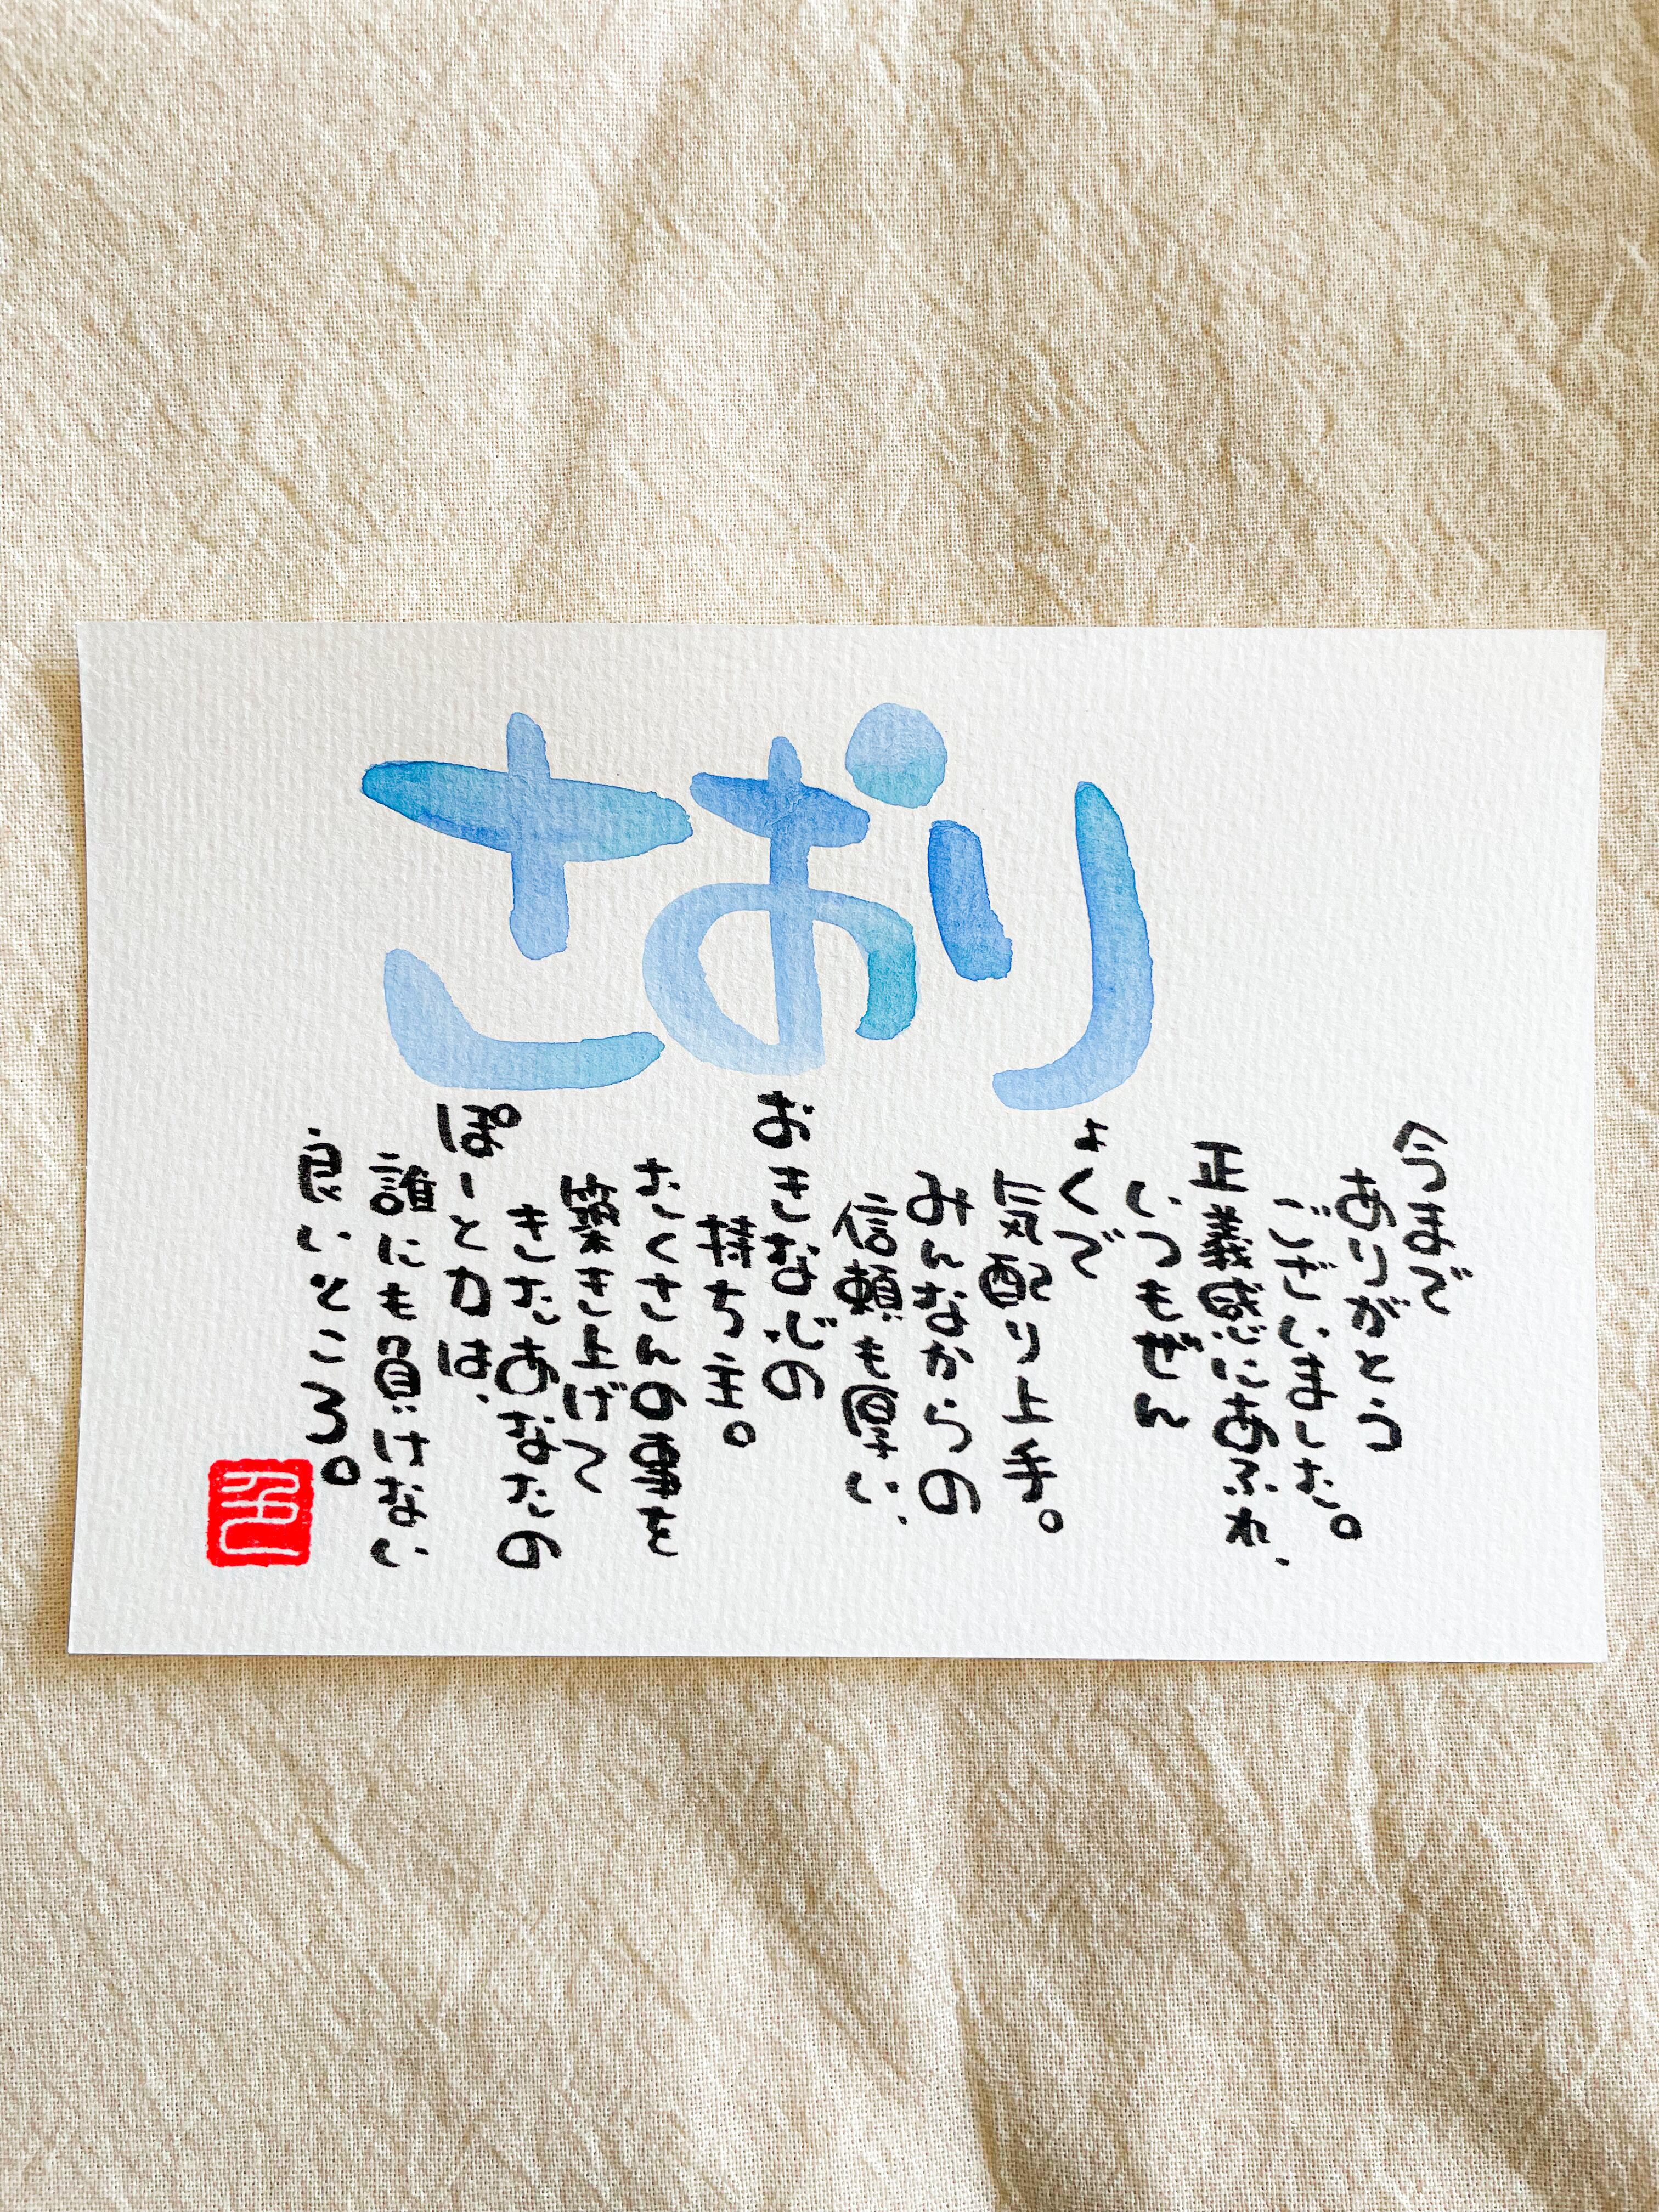 さおり
今まで
ありがとう
ございました。
正義感にあふれ、
いつもぜん
ょくで
気配り上手。
みんなからの
信頼も厚い、
おきな心の
持ち主。
たくさんの事を
築き上げて
きたあなたの
ぽーと力は、
誰にも負けない
良いところ。